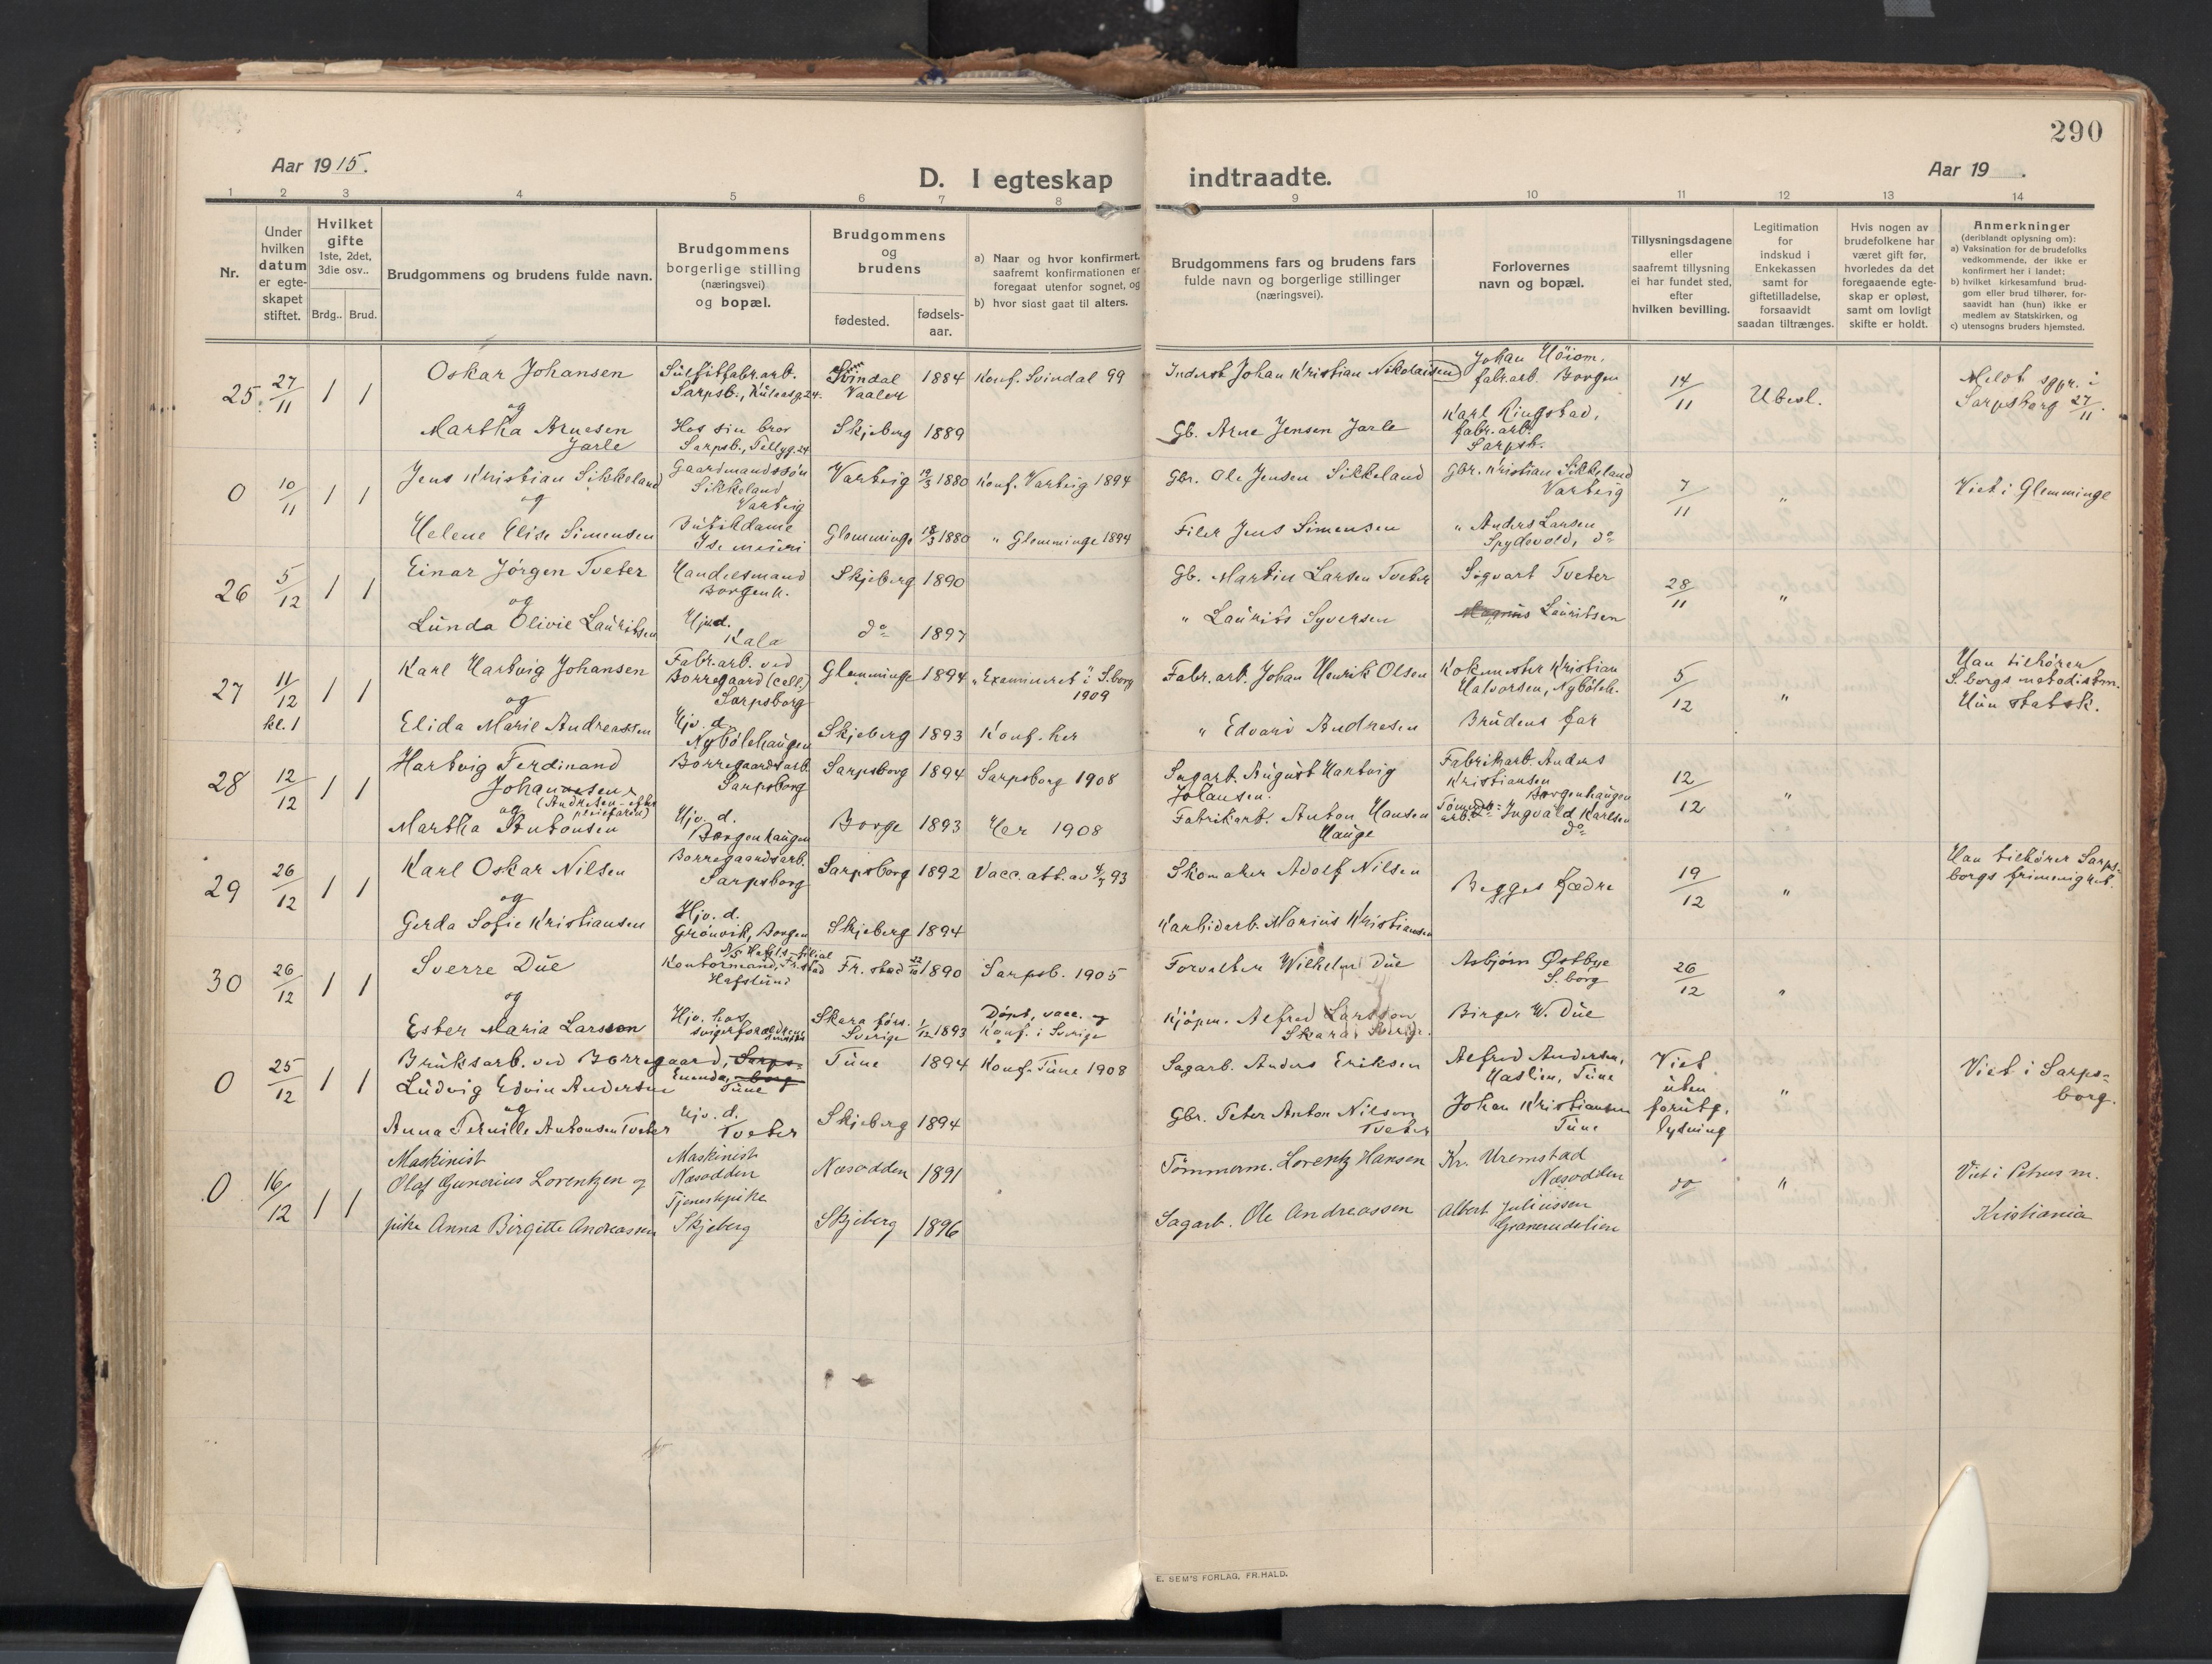 290
Aar 1915.
D. I egteskap indtraadte.
Aar 19 .
1 2 3 4 5 6 7 8 9 10 11 12 13 14
Nr.
Under hvilken datum er egte-skapet stiftet.
Hvilket gifte 1ste, 2det, 3die osv..
Brdg.. Brud.
Brudgommens og brudens fulde navn.
Brudgommens borgerlige stilling (næringsvei) og bopæl.
Brudgommens og brudens
fødested.
fødsels-aar.
a) Naar og hvor konfirmert, saafremt konfirmationen er foregaat utenfor sognet, og
b) hvor sidst gaat til alters.
Brudgommens fars og brudens fars fulde navn og borgerlige stillinger (næringsvei).
Forlovernes navn og bopæl.
Tillysningsdagene eller saafremt tillysning ei har fundet sted, efter hvilken bevilling.
Legitimation for indskud i Enkekassen samt for giftetilladelse, forsaavidt saadan tiltrænges.
Hvis nogen av brudefolkene har været gift før, hvorledes da det foregaaende egte-skap er opløst, samt om lovlig skifte er holdt.
Anmerkninger
(deriblandt oplysning om):
a) Vaksination for de brudefolks vedkommende, der ikke er konfirmert her i landet;
b) hvilket kirkesamfund brud-gom eller brud tilhører, for-saavidt han (hun) ikke er medlem av Statskirken, og
c) utensogns bruders hjemsted.
25. 27/11 1 1
Oskar Johansen
og
Martha Arnesen
Jarle
Sulfitfabr.arb.
Sarpsb., Kulaasg. 24.
Hos sin bror
Sarpsb., Tellyg. 24
Svindal
Vaaler
1884
Konf. Svindal 99
Skjeberg 1889
Inderst Johan Kristian Nikolaisen
Gb. Arne Jensen Jarle
Johan Höiom,
fabr.arb. Borgen
Karl Ringstad,
fabr.arb.
Sarpsb.
14/11
Ubesl.
Meldt sgpr. i
Sarpsborg 27/11.
0 10/11 1 1
Jens Kristian Sikkeland
og
Helene Elise Simensen
Gaardmandssøn
Sikkeland
Varteig
Butikdame
Ise meieri
Varteig 19/3 1880 Konf. Varteig 1894
Glemminge 18/3 1880 " Glemminge 1894
Gbr. Ole Jensen Sikkeland
Filer Jens Simensen
Gbr. Kristian Sikkeland
Varteig
" Anders Larsen
Spydevold, do
7/11
"
Viet i Glemminge
26 5/12 1 1
Einar Jörgen Tveter
og
Lunda Olivie Lauritsen
Handelsmand
Borgenh.
Hjv.d.
Kala
Skjeberg 1890
do 1897
Gb. Martin Larsen Tveter
" Laurits Syversen
Sigvart Tveter
Magnus Lauritsen
28/11
"
27 11/12 kl. 1 1 1
Karl Hartvig Johansen
og
Elida Marie Andreassen
Fabr.arb. ved
Borregaard (Cell.)
Sarpsborg
Hjv. d.
Nybölehaugen
Glemminge 1894
"Examineret" i S.borg
1909
Skjeberg 1893 Konf. her
Fabr.arb. Johan Henrik Olsen
" Edvard Andresen
Kokemester Kristian
Halvorsen, Nyböleh.
Brudens far
5/12
"
Han tilhører
S.borgs metodistm.
Hun statsk.
28 12/12 1 1
Hartvig Ferdinand
Johannesen
(Andresen - efter
pleiefaren)
og
Martha Antonsen
Borregaardsarb.
Sarpsborg
Hjv. d.
Borgenhaugen
Sarpsborg 1894 Sarpsborg 1908
Borge 1893 Her 1908
Sagarb. August Hartvig
Johansen.
Fabrikarb. Anton Hansen
Hauge
Fabrikarb. Anders
Kristiansen
Borgenhaugen
Ingvald Karlsen
do
12/12
"
29 26/12 1 1
Karl Oskar Nilsen
og
Gerda Sofie Kristiansen
Borregaardsarb.
Sarpsborg
Hjv. d.
Grönvik, Borgen
Sarpsborg 1892 Vacc.att. av 4/7 93
Skjeberg 1894
Skomaker Adolf Nilsen
Karbidarb. Marius Kristiansen
Begges fædre
19/12
"
Han tilhører Sarps-
borgs frimenighet.
30 26/12 1 1
Sverre Due
og
Ester Maria Larsson
Kontormand, Fr.stad
Hafslund
Hjv. hos
svigerforældrene
Fr. stad 1890 Sarpsb. 1905
Skara förs.
Sverige
1/12 1893
Döpt, vacc. og
Konf. i Sverige
Forvalter Wilhelm Due
Kjöpm. Alfred Larsson
Skara i Sverige.
Asbjörn Østbye
S.borg
Birger W. Due
26/12
"
0 25/12 1 1
Bruksarb. ved Borregaard, Sarps-
borg
Ludvig Edvin Andersen
og
Anna Pernille Antonsen Tveter
Enenda, Tune
Hjv. d.
Tveter
Tune 1894 Konf. Tune 1908
Skjeberg 1894
Sagarb. Anders Eriksen
Gbr. Peter Anton Nilsen
Tveter
Alfred Andersen,
Haslien, Tune
Johan Kristiansen
Tune
Viet
uten
forutg.
lysning
"
Viet i Sarps-
borg.
0 16/12 1 1
Maskinist
Olaf Gunerius Lorentzen og
pike Anna Birgitte Andreassen
Maskinist
Næsodden
Tjenestepike
Skjeberg
Næsodden 1891
Skjeberg 1896
Tömmerm. Lorentz Hansen
Sagarb. Ole Andreassen
Kr. Uremstad
Næsodden
Albert Juliussen
Granerudlien
do
"
Viet i Petrus m.
Kristiania
E. SEM'S FORLAG, FR.HALD.